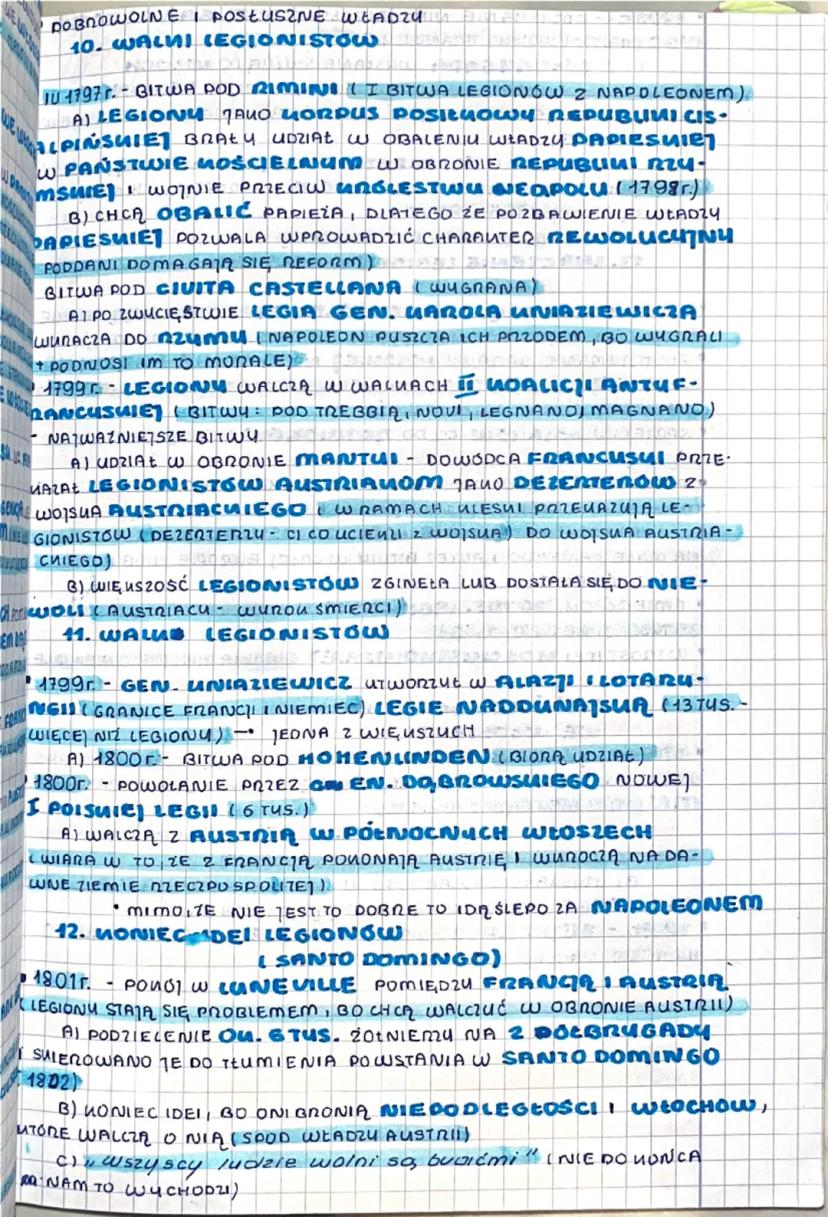 DOBROWOLNE I POSŁUSZNE WŁADZY
10. WALKI LEGIONISTÓW
IV 1797r. - BITWA POD RIMINI (I BITWA LEGIONÓW Z NAPOLEONEM)
A) LEGIONY JAKO KORPUS POSIŁKOWY REPUBLIKI CIS-
ALPIŃSKIEJ BRAŁY UDZIAŁ W OBALENIU WŁADZY PAPIESKIEJ
W PAŃSTWIE KOŚCIELNYM W OBRONIE REPUBLIKI RZY-
MSKIEJ I WOJNIE PRZECIW KRÓLESTWU NEAPOLU (1798r.)
B) CHCĄ OBALIĆ PAPIEŻA, DLATEGO ŻE POZBAWIENIE WŁADZY
PAPIESKIEJ POZWALA WPROWADZIĆ CHARAKTER REWOLUCYJNY
PODDANI DOMAGAJĄ SIĘ REFORM)
BITWA POD CIVITA CASTELLANA (WYGRANA)
A) PO ZWYCIĘSTWIE LEGIA GEN. KAROLA KNIAZIEWICZA
WKRACZA DO RZYMU (NAPOLEON PUSZCZA ICH PRZODEM, BO WYGRALI
+ PODNOSI IM TO MORALE)
1799r. - LEGIONY WALCZĄ W WALKACH II KOALICJI ANTYF-
RANCUSKIEJ (BITWY: POD TREBBIĄ, NOVI, LEGNANO, MAGNANO)
- NAJWAŻNIEJSZE BITWY
A) UDZIAŁ W OBRONIE MANTUI - DOWÓDCA FRANCUSKI PRZE-
KAZAŁ LEGIONISTÓW AUSTRIAKOM JAKO DEZERTERÓW Z
WOJSKA AUSTRIACKIEGO (W RAMACH KLĘSKI PRZEKAZUJĄ LE-
GIONISTÓW (DEZERTERZY - CI CO UCIEKLI Z WOJSKA) DO WOJSKA AUSTRIA-
CKIEGO)
B) WIĘKSZOŚĆ LEGIONISTÓW ZGINĘŁA LUB DOSTAŁA SIĘ DO NIE-
WOLI (AUSTRIACY - WYROK ŚMIERCI)
11. WALKI LEGIONISTÓW
1799r. - GEN. KNIAZIEWICZ UTWORZYŁ W ALAZJI I LOTARY-
NGII (GRANICE FRANCJI I NIEMIEC) LEGIE NADDUNAJSKĄ (13 TYS. -
WIĘCEJ NIŻ LEGIONY) → JEDNA Z WIĘKSZYCH
A) 1800r. - BITWA POD HOHENLINDEN (BIORĄ UDZIAŁ)
1800r. - POWOŁANIE PRZEZ GEN. DĄBROWSKIEGO NOWEJ
I POLSKIEJ LEGII (6 TYS.)
A) WALCZĄ Z AUSTRIĄ W PÓŁNOCNYCH WŁOSZECH
(WIARA W TO, ŻE Z FRANCJĄ POKONAJĄ AUSTRIĘ I WKROCZĄ NA DA-
WNE ZIEMIE RZECZPOSPOLITEJ)
• MIMO, ŻE NIE JEST TO DOBRE TO IDĄ ŚLEPO ZA NAPOLEONEM
12. KONIEC IDEI LEGIONÓW
(SANTO DOMINGO)
1801r. - POKÓJ W LUNEVILLE POMIĘDZY FRANCJĄ I AUSTRIĄ
(LEGIONY STAJĄ SIĘ PROBLEMEM, BO CHCĄ WALCZYĆ W OBRONIE AUSTRII)
A) PODZIELENIE OK. 6 TYS. ŻOŁNIERZY NA 2 PÓŁBRYGADY
I SKIEROWANO JE DO TŁUMIENIA POWSTANIA W SANTO DOMINGO
1802)
B) KONIEC IDEI, BO ONI BRONIĄ NIEPODLEGŁOŚCI I WŁOCHÓW,
KTÓRE WALCZĄ O NIĄ (SPOD WŁADZY AUSTRII)
C) „Wszyscy ludzie wolni są braćmi" (NIE DO KOŃCA
NAM TO WYCHODZI)